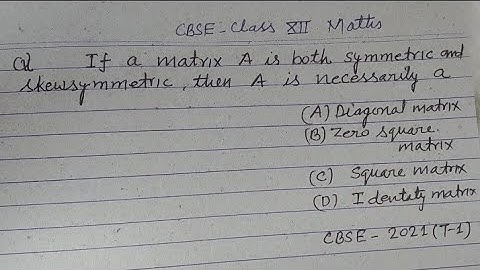 CBSE - Class XII Maths
Q1 If a matrix A is both symmetric and
skewsymmetric, then A is necessarily a
(A) Diagonal matrix
(B) Zero square.
matrix
(C) Square matrix
(D) Identity matrix
CBSE - 2021 (T-1)